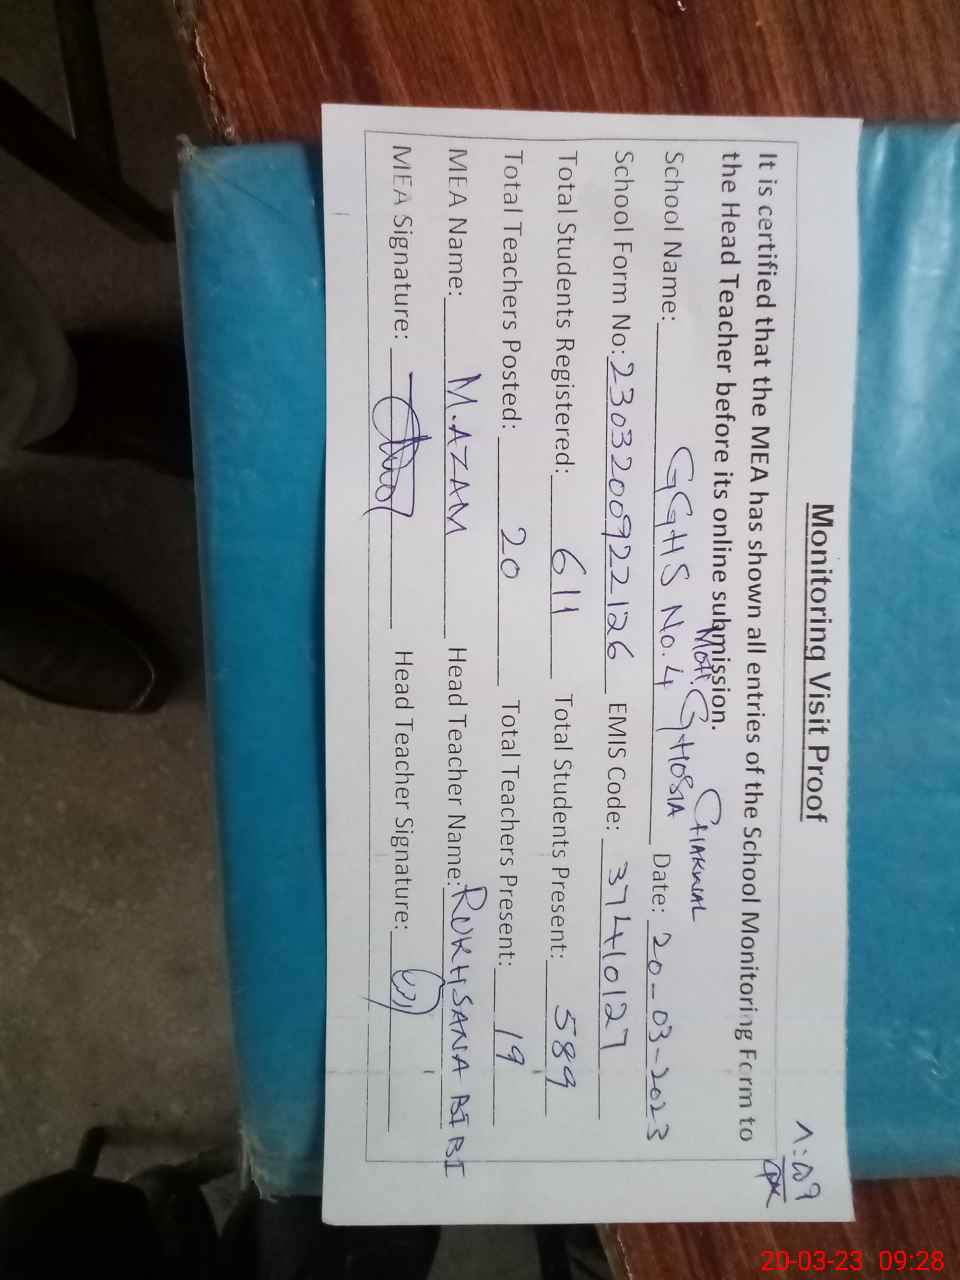 Monitoring Visit Proof
It is certified that the MEA has shown all entries of the School Monitoring Form to
the Head Teacher before its online submission.
CHAKWAL
MOH. GHOSIA
School Name: GGHS No. 4 Date: 20-03-2023
School Form No: 2303200922126 EMIS Code: 37410127
Total Students Registered: 611 Total Students Present: 589
Total Teachers Posted: 20 Total Teachers Present: 19
MEA Name: M. AZAM Head Teacher Name: RUKHSANA BIBI
MEA Signature: Head Teacher Signature:
20-03-23 09:28